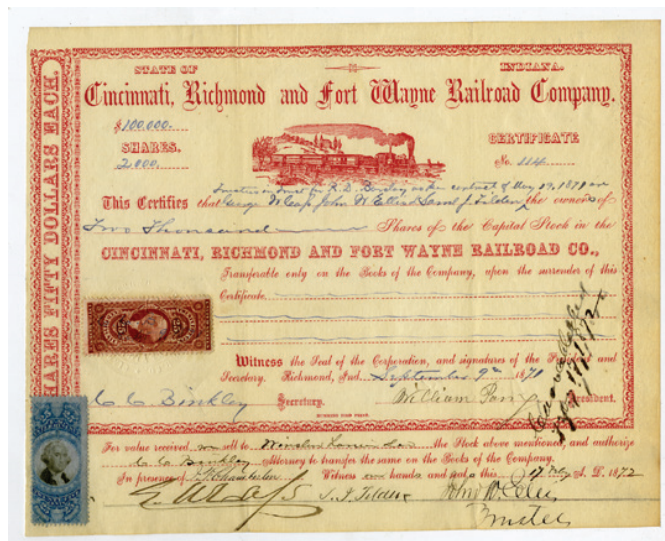 STATE OF INDIANA.
Cincinnati, Richmond and Fort Wayne Railroad Company.
$100,000.
SHARES.
2,000.
CERTIFICATE
No. 114
Trustees in trust for R. D. as the contract of May 19, 1871 are
This Certifies that George W Cass John W Ellis & Saml J. Tilden the owners of
Two Thousand Shares of the Capital Stock in the
CINCINNATI, RICHMOND AND FORT WAYNE RAILROAD CO.,
Transferable only on the Books of the Company, upon the surrender of this
Certificate.
Witness the Seal of the Corporation, and signatures of the President and
Secretary. Richmond, Ind. September 9th 1871
C C Binkley Secretary. William President.
For value received we sell to Winslow Lanier & Co the Stock above mentioned, and authorize
C C Binkley Attorney to transfer the same on the Books of the Company.
In presence of Chamberlin Witness our hands and seals this 17 A. D. 1872
G W Cass S. J. Tilden John W. Ellis
Trustees
SHARES FIFTY DOLLARS EACH.
Cancelled
1872